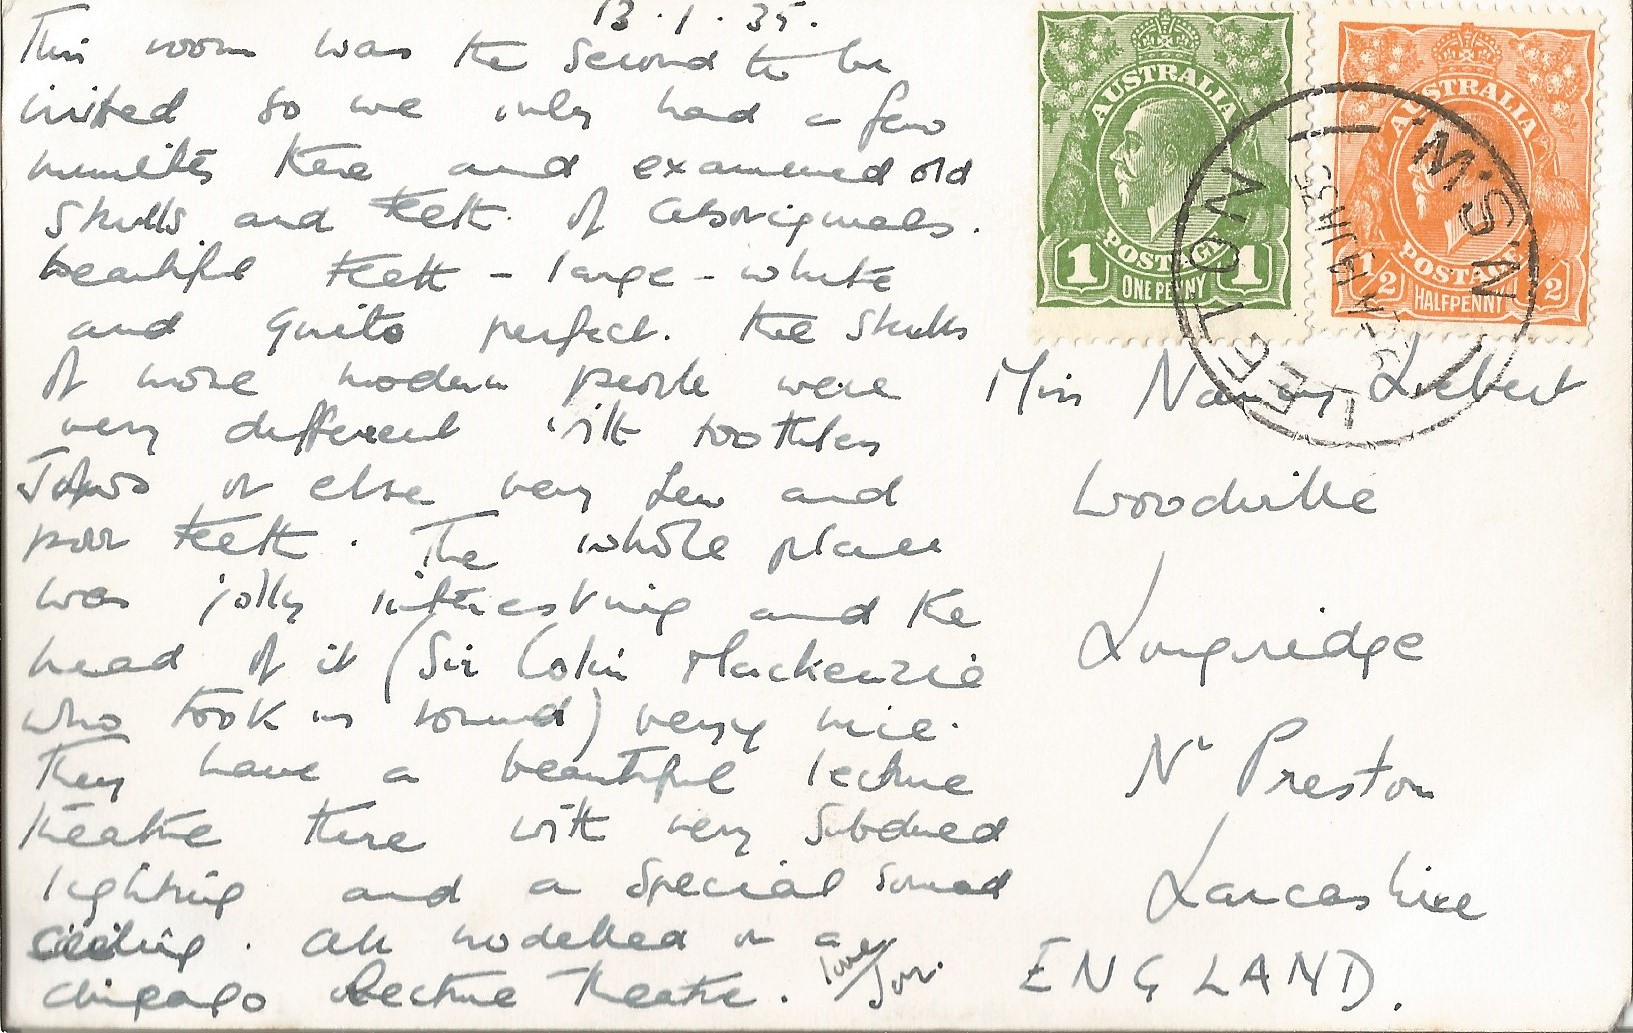 13.1.35.
This room was the second to be
visited so we only had a few
minutes there and examined old
skulls and teeth of aboriginals.
beautiful teeth - large - white
and quite perfect. The skulls
of more modern people were
very different with toothless
jaws or else very few and
poor teeth. The whole place
was jolly interesting and the
head of it (Sir Colin Mackenzie
who took us round) very nice.
They have a beautiful lecture
theatre there with very subdued
lighting and a special sound
ceiling. All modelled on a
chicago lecture theatre. love
Jon.
AUSTRALIA
POSTAGE
1 ONE PENNY 1
AUSTRALIA
POSTAGE
1/2 HALFPENNY 1/2
LEETON
JA 35
N.S.W.
Miss Nancy
Woodville
Longridge
Nr Preston
Lancashire
ENGLAND.